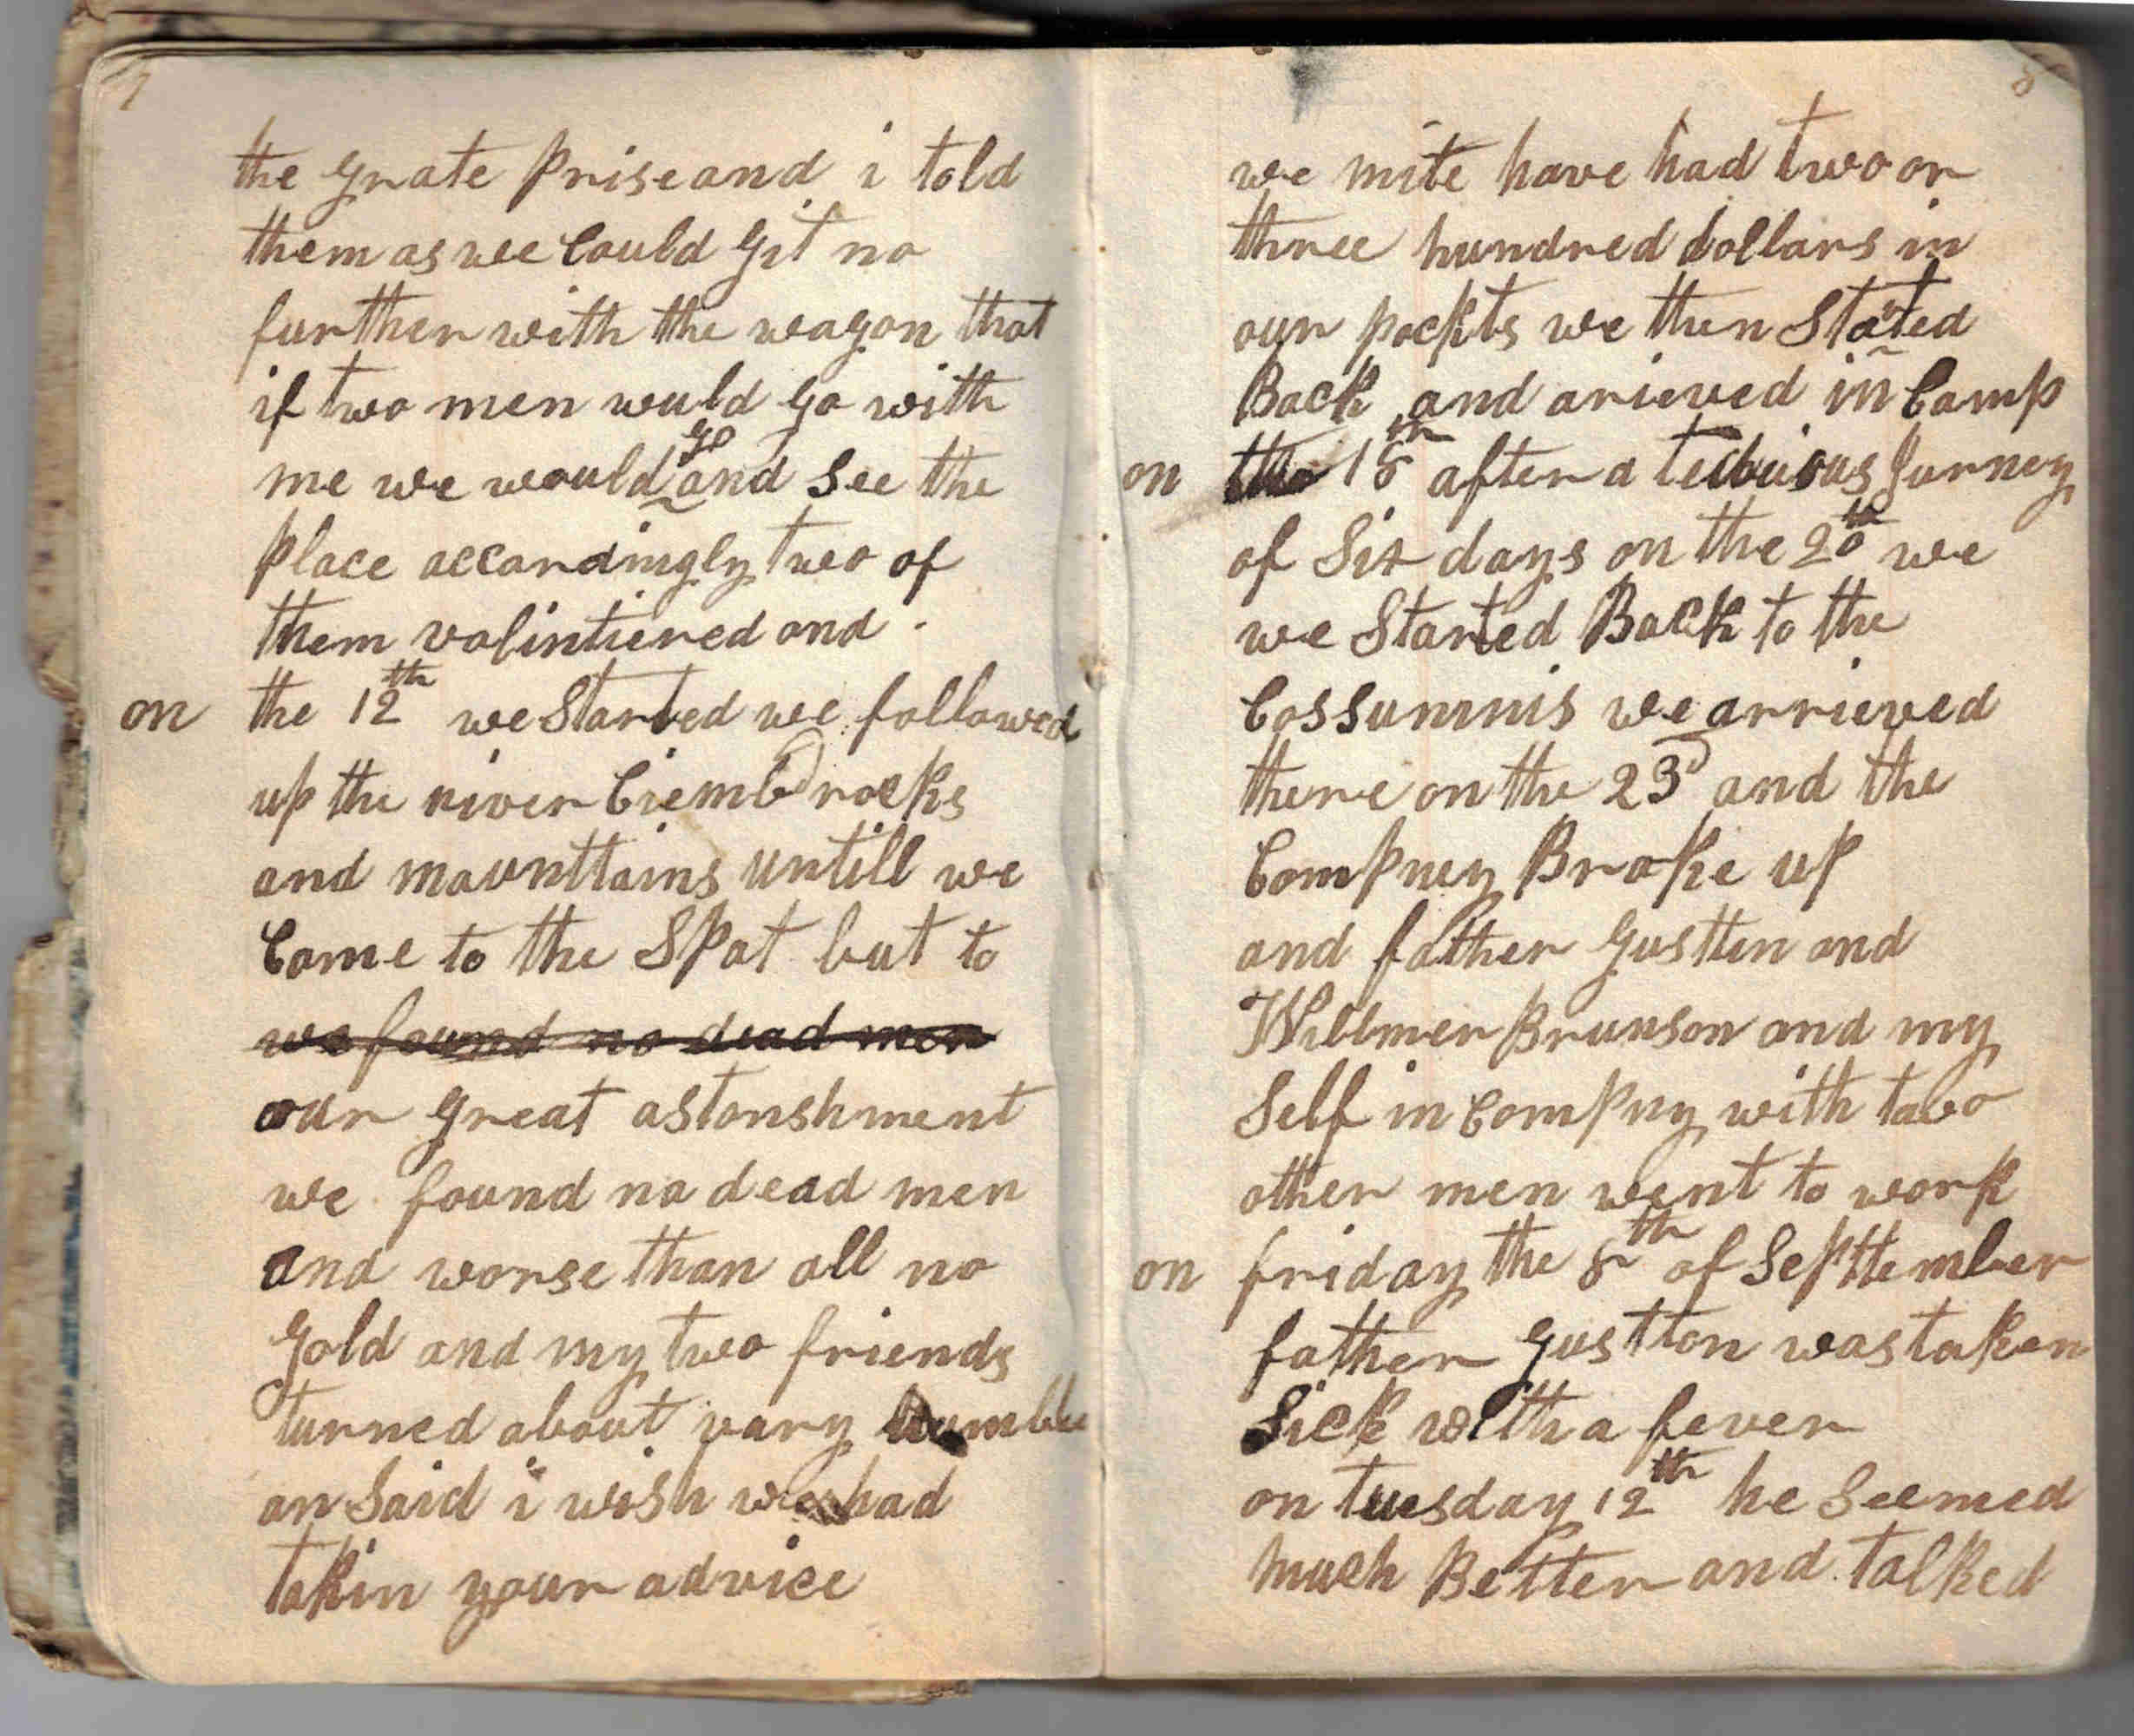 7
the grate prise and i told
them as we Could git no
further with the wagon that
if two men would go with
me we would go and See the
place accordingly two of
them volintiered and
on the 12th we Started we followed
up the river Ciemb rocks
and mounttains untill we
Come to the Spot but to
we found no dead men
our great astonshment
we found no dead men
and worse than all no
gold and my two friends
turned about vary humble
an Said i wish we had
takin your advice
8
we mite have had two or
three hundred dollars in
our pockts we then Stated
Back and arieved in Camp
on the 18th after a Jurney
of Six days on the 20th we
we Started Back to the
Cossumnis we arrieved
there on the 23d and the
Compney Broke up
and father Gustten and
Willmer Brunson and my
Self in Compny with two
other men went to work
on friday the 8th of Septtember
father Gustton was taken
Sick with a fever
on tuesday 12th he Seemed
much Better and talked